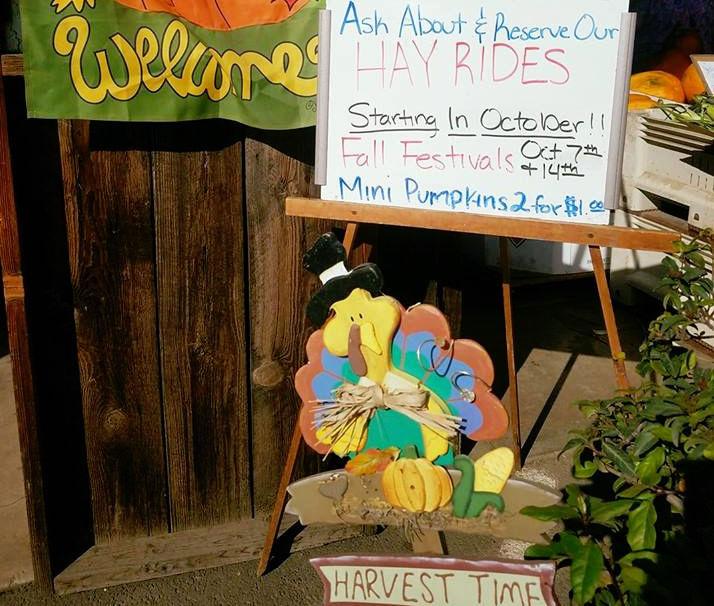 Welcome
Ask About & Reserve Our
HAY RIDES
Starting In October!!
Fall Festivals Oct 7th
+ 14th
Mini Pumpkins 2 for $1.00
HARVEST TIME